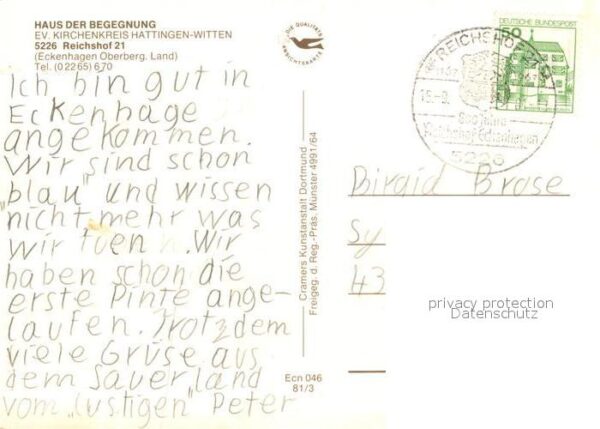 HAUS DER BEGEGNUNG
EV. KIRCHENKREIS HATTINGEN-WITTEN
5226 Reichshof 21
(Eckenhagen Oberberg. Land)
Tel. (0 22 65) 6 70
Ich bin gut in
Eckenhage
angekommen.
Wir sind schon
"blau" und wissen
nicht mehr was
wir tuen. Wir
haben schon die
erste Pinte ange-
laufen. Trotzdem
viele Grüse aus
dem Sauerland
vom "lustigen" Peter
DIE QUALITÄTS
ANSICHTSKARTE
Cramers Kunstanstalt Dortmund
Freigeg. d. Reg.-Präs. Münster 4991/64
Ecn 046
81/3
DEUTSCHE BUNDESPOST
50
REICHSHOF
15.-9.
800 Jahre
Reichshof Eckenhagen
5226
Biraid Brose
Sy
43
privacy protection
Datenschutz